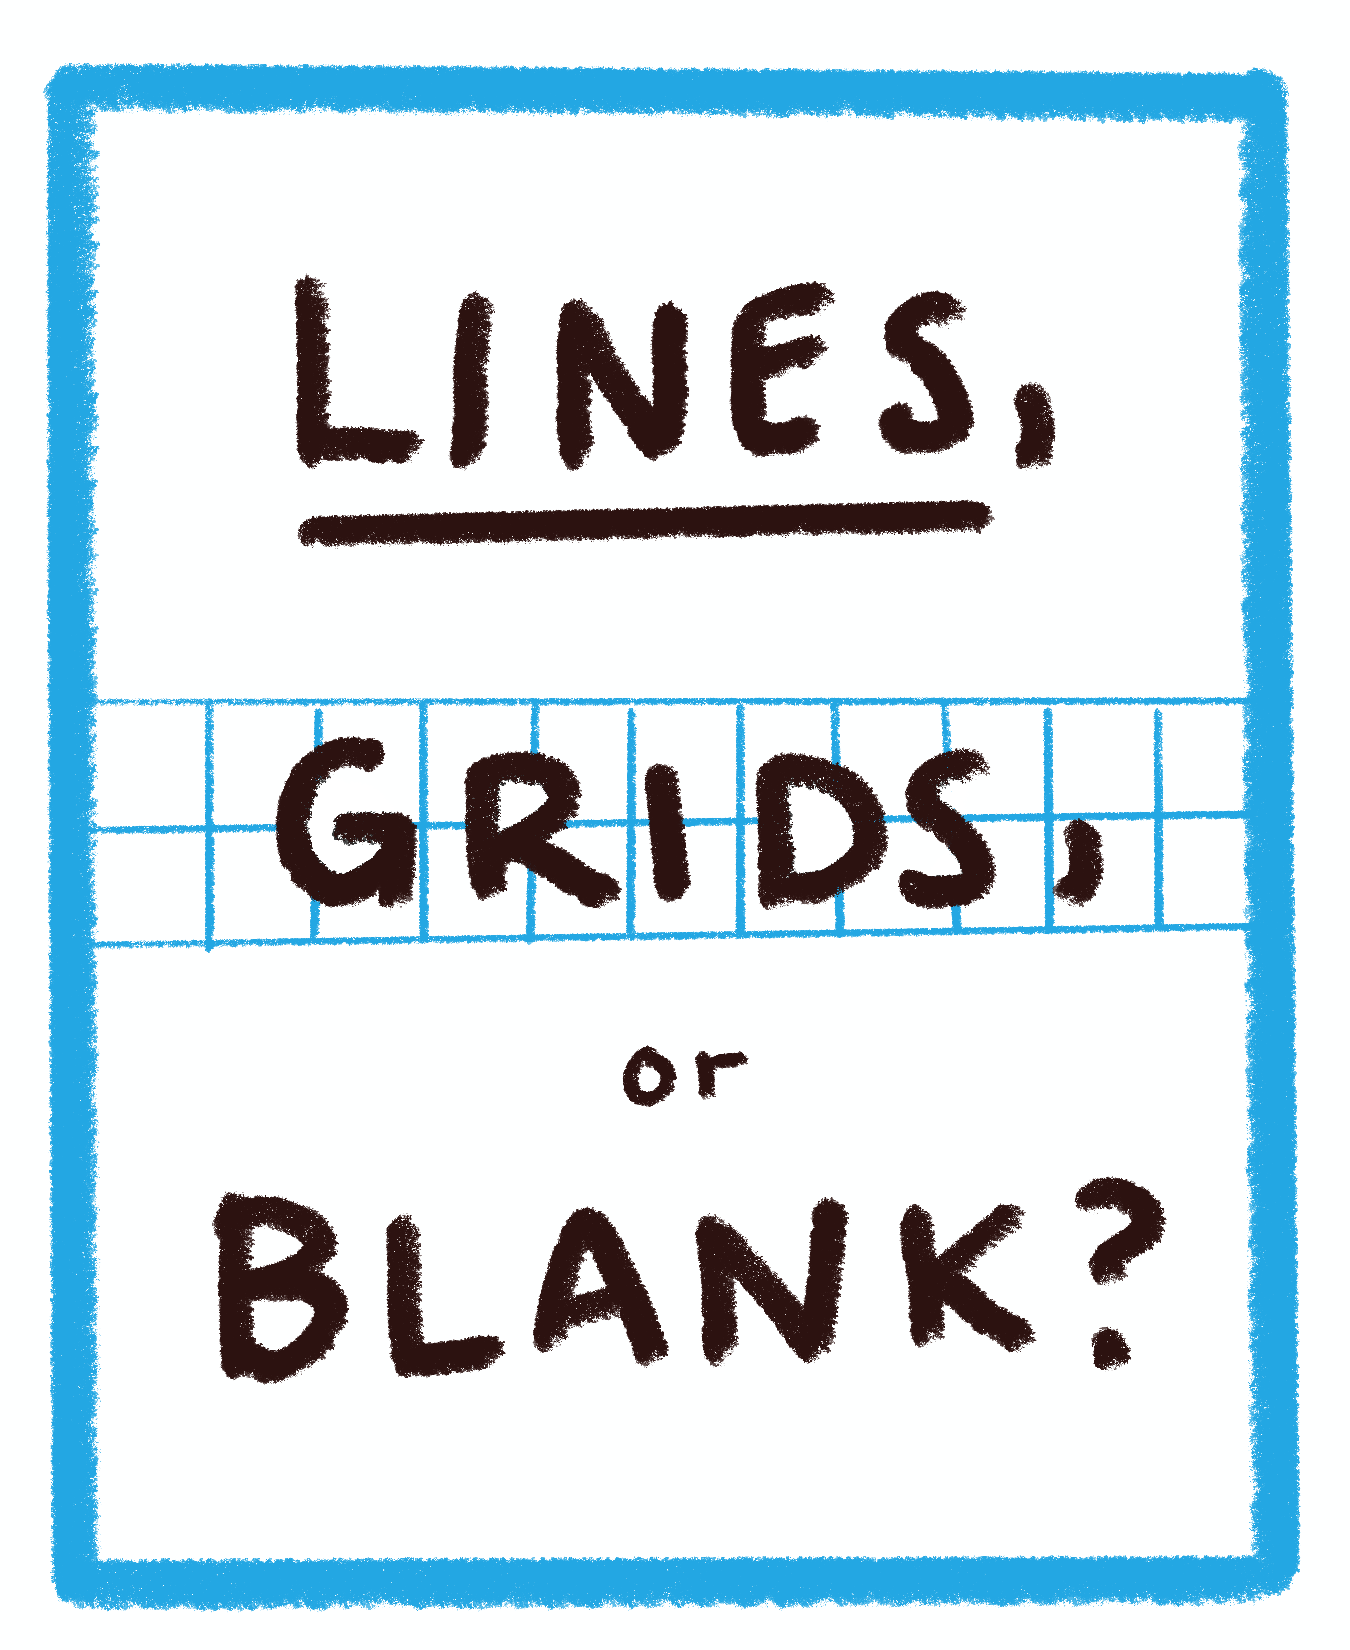 LINES,
GRIDS,
or
BLANK?